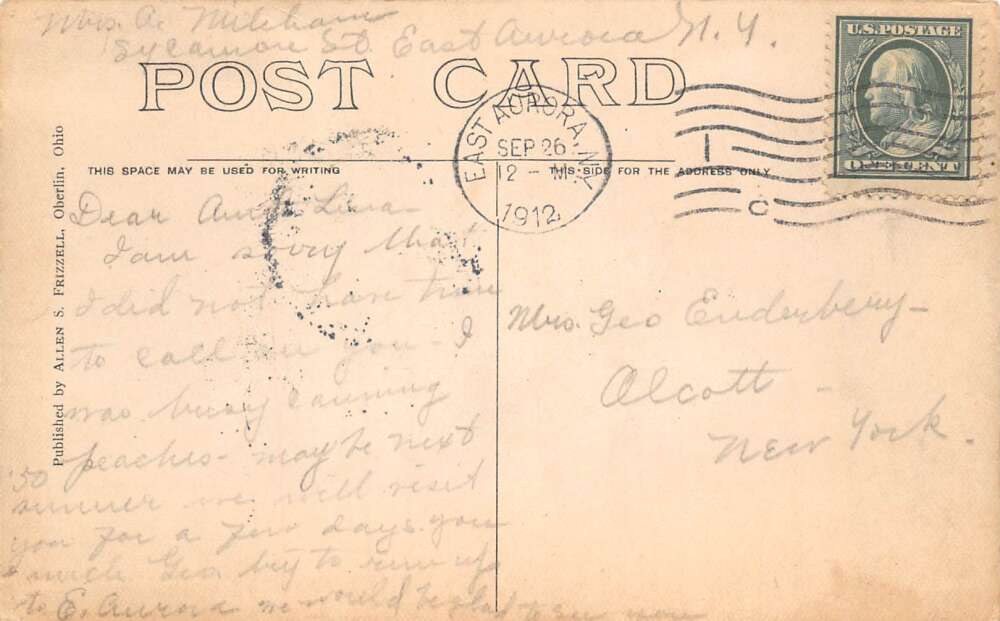 Mrs. A. Mileham
Sycamore St. East Aurora N.Y.
POST CARD
U.S. POSTAGE
ONE CENT
EAST AURORA, N.Y.
SEP 26
12 - M
1912
1
C
THIS SPACE MAY BE USED FOR WRITING
THIS SIDE FOR THE ADDRESS ONLY
Published by ALLEN S. FRIZZELL, Oberlin, Ohio
Dear Aunt Lina-
I am sorry that
I did not have time
to call on you - I
was busy canning
peaches - maybe next
summer we will visit
you for a few days you
Geo. try to run up
to E. Aurora we would be glad to see you
'50
Mrs. Geo Enderbery-
Olcott -
New York.